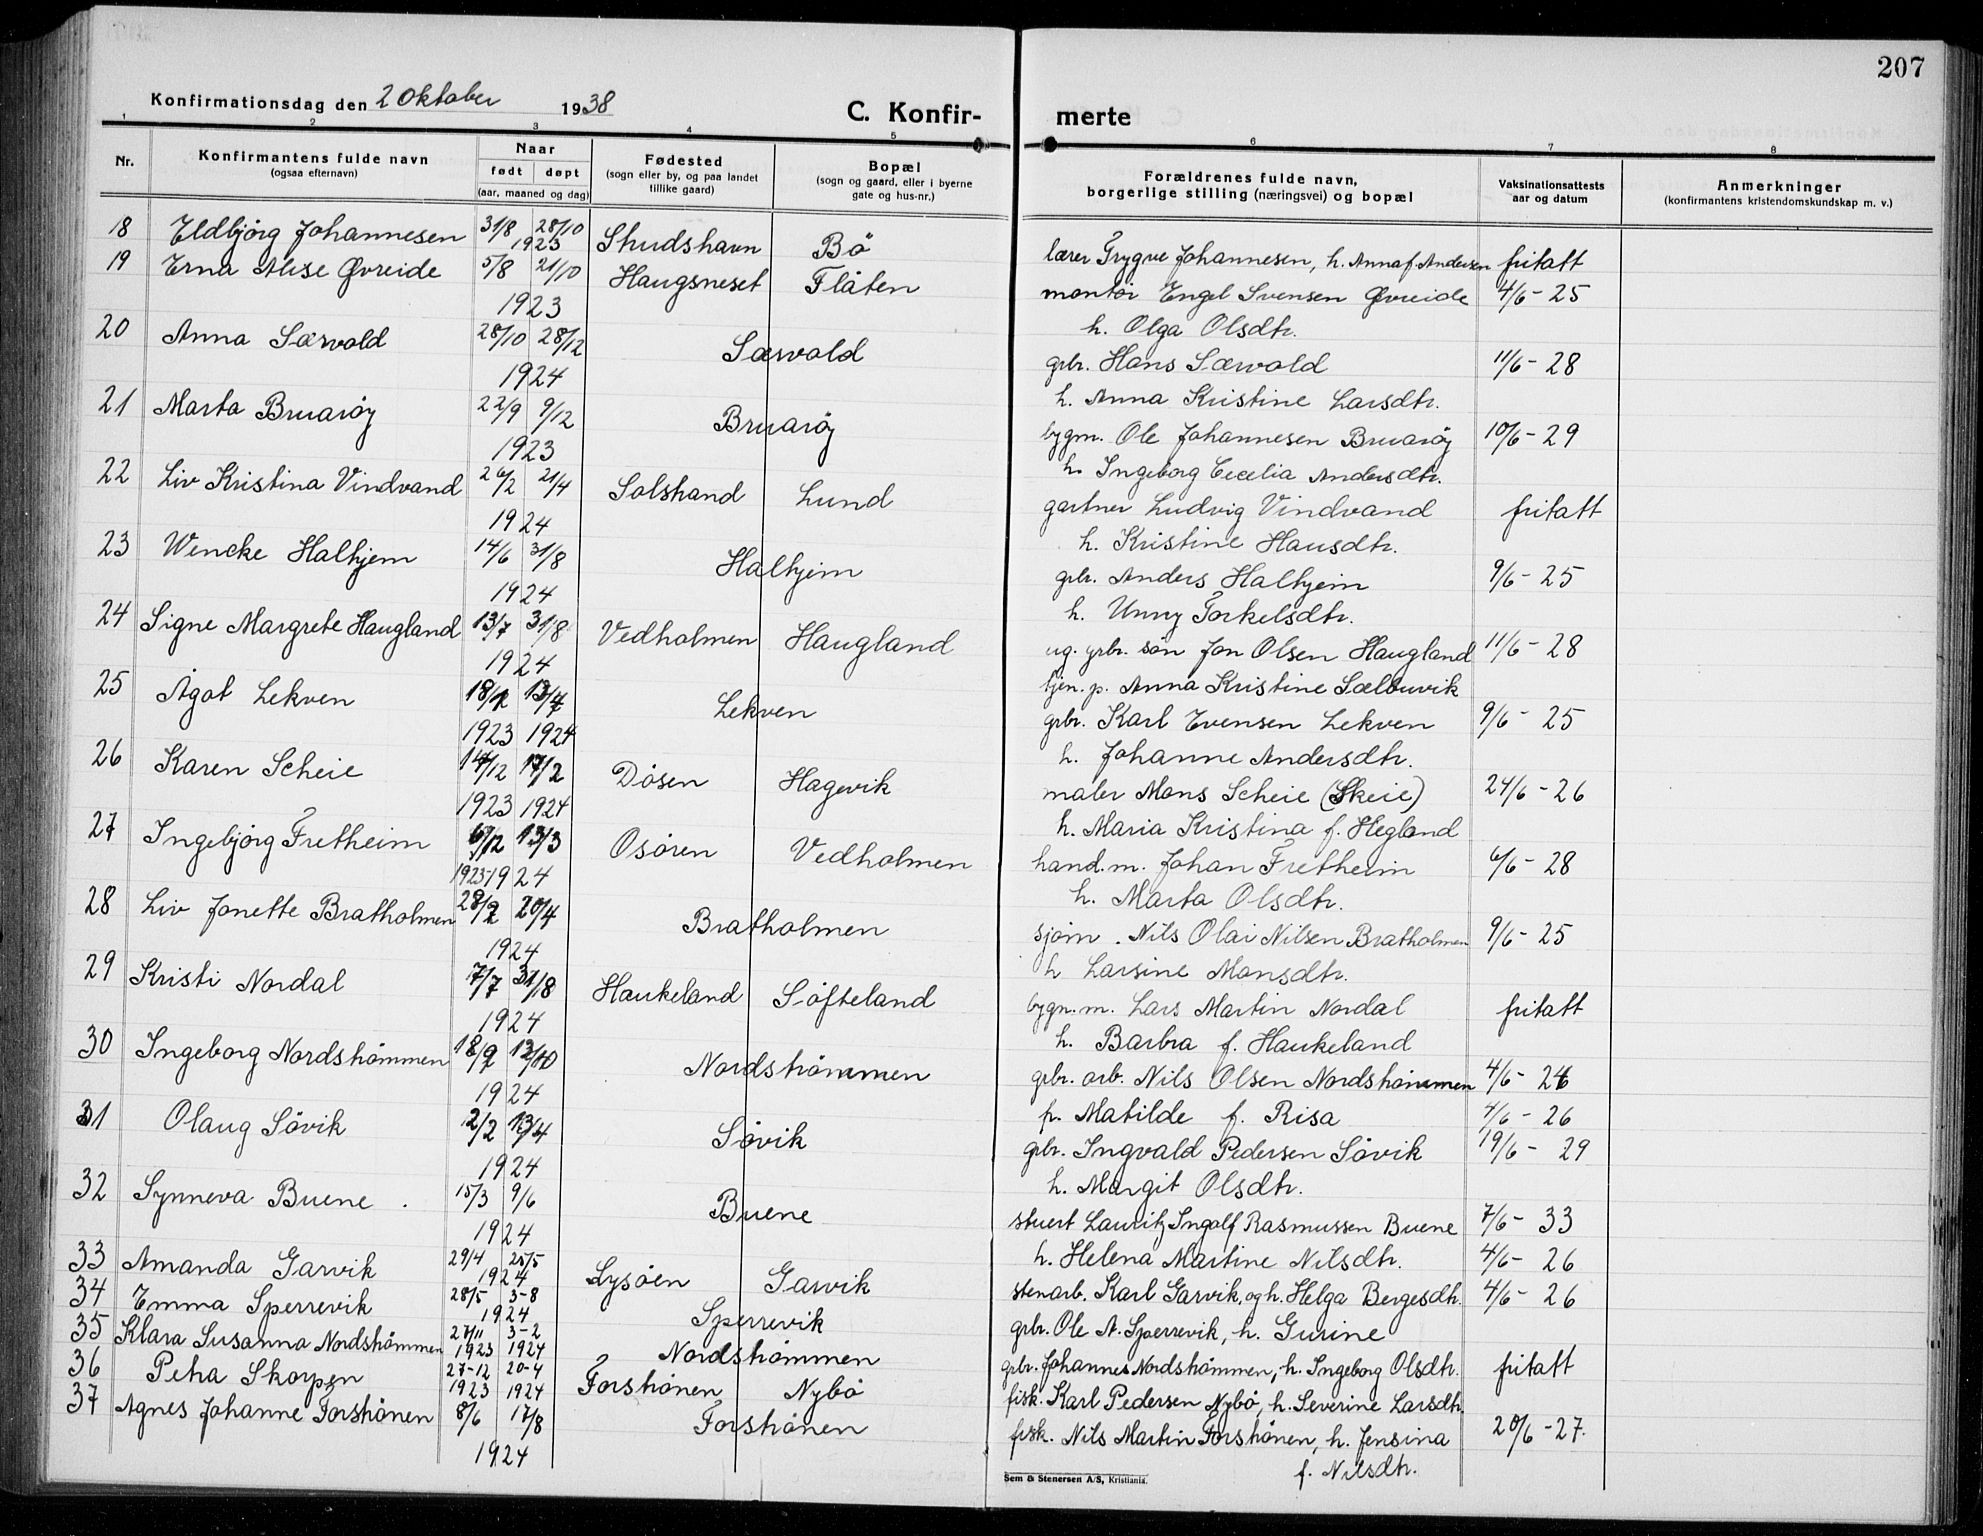 207
Konfirmationsdag den 2 Oktober 1938
C. Konfir- merte
1 2 3 4 5 6 7 8
Nr. Konfirmantens fulde navn (ogsaa efternavn) Naar født døpt (aar, maaned og dag) Fødested (sogn eller by, og paa landet tillike gaard) Bopæl (sogn og gaard, eller i byerne gate og hus-nr.) Forældrenes fulde navn, borgerlige stilling (næringsvei) og bopæl Vaksinationsattests aar og datum Anmerkninger (konfirmantens kristendomskundskap m. v.)
18 Eldbjörg Johannesen 31/8 28/10 1923 Skudshavn Bö lærer Trygve Johannesen, h. Anna f. Andersen fritatt
19 Erna Alise Øvreide 5/8 21/10 1923 Haugsneset Flåten montör Engel Svensen Øvreide 4/6-25
h. Olga Olsdtr.
20 Anna Særvold 28/10 28/12 1924 Særvold grbr. Hans Særvold 11/6-28
h. Anna Kristine Larsdtr.
21 Marta Bruaröy 22/9 9/12 1923 Bruaröy bygm. Ole Johannesen Bruaröy 10/6-29
h. Ingeborg Cecelia Andersdtr.
22 Liv Kristina Vindvand 26/2 21/4 1924 Solstrand Lund gartner Ludvig Vindvand fritatt
h. Kristine Hansdtr.
23 Wencke Halhjem 14/6 31/8 1924 Halhjem grbr. Anders Halhjem 9/6-25
h. Unny Torkelsdtr.
24 Signe Margrete Haugland 13/7 31/8 1924 Vedholmen Haugland ug. grbr. sön Jon Olsen Haugland 11/6-28
tjen. p. Anna Kristine Sælbuvik
25 Ågot Lekven 1923 1924 Lekven grbr. Karl Evensen Lekven 9/6-25
h. Johanne Andersdtr.
26 Karen Scheie 14/12 17/2 1923 1924 Dösen Hagevik maler Mons Scheie (Skeie) 24/6-26
h. Maria Kristina f. Hegland
27 Ingebjörg Fretheim 6/12 13/3 1923 1924 Osören Vedholmen hand. m. Johan Fretheim 6/6-28
h. Marta Olsdtr.
28 Liv Jonette Bratholmen 28/2 20/4 1924 Bratholmen sjöm. Nils Olai Nilsen Bratholmen 9/6-25
h Larsine Monsdtr.
29 Kristi Nordal 7/7 31/8 1924 Haukeland Söfteland bygn. m. Lars Martin Nordal fritatt
h. Barbra f. Haukeland
30 Ingeborg Nordströmmen 18/9 12/10 1924 Nordströmmen grbr. arb. Nils Olsen Nordströmmen 4/6-26
h. Matilde f. Risa 4/6-26
31 Olaug Sövik 2/2 13/4 1924 Sövik grbr. Ingvald Pedersen Sövik 19/6-29
h. Margit Olsdtr.
32 Synneva Buene 15/3 9/6 1924 Buene stuert Lauritz Ingolf Rasmussen Buene 7/6-33
h. Helena Martine Nilsdtr. 4/6-26
33 Amanda Garvik 29/4 25/5 1924 Lysöen Garvik stenarb. Karl Garvik, og h. Helga Bergesdtr. 4/6-26
34 Emma Sperrevik 28/5 3-8 1924 Sperrevik grbr. Ole A. Sperrevik, h. Gurine
35 Klara Susanna Nordströmmen 27/11 3-2 1923 1924 Nordströmmen grbr. Johannes Nordströmmen, h. Ingeborg Olsdtr. fritatt
36 Petra Skorpen 27-12 20-4 1923 1924 Forströnen Nybö fisk. Karl Pedersen Nybö, h. Severine Larsdtr.
37 Agnes Johanne Forströnen 8/6 17/8 1924 Forströnen fisk. Nils Martin Forströnen, h. Jensina 20/6-27.
f. Nilsdtr.
Sem & Stenersen A/S, Kristiania.